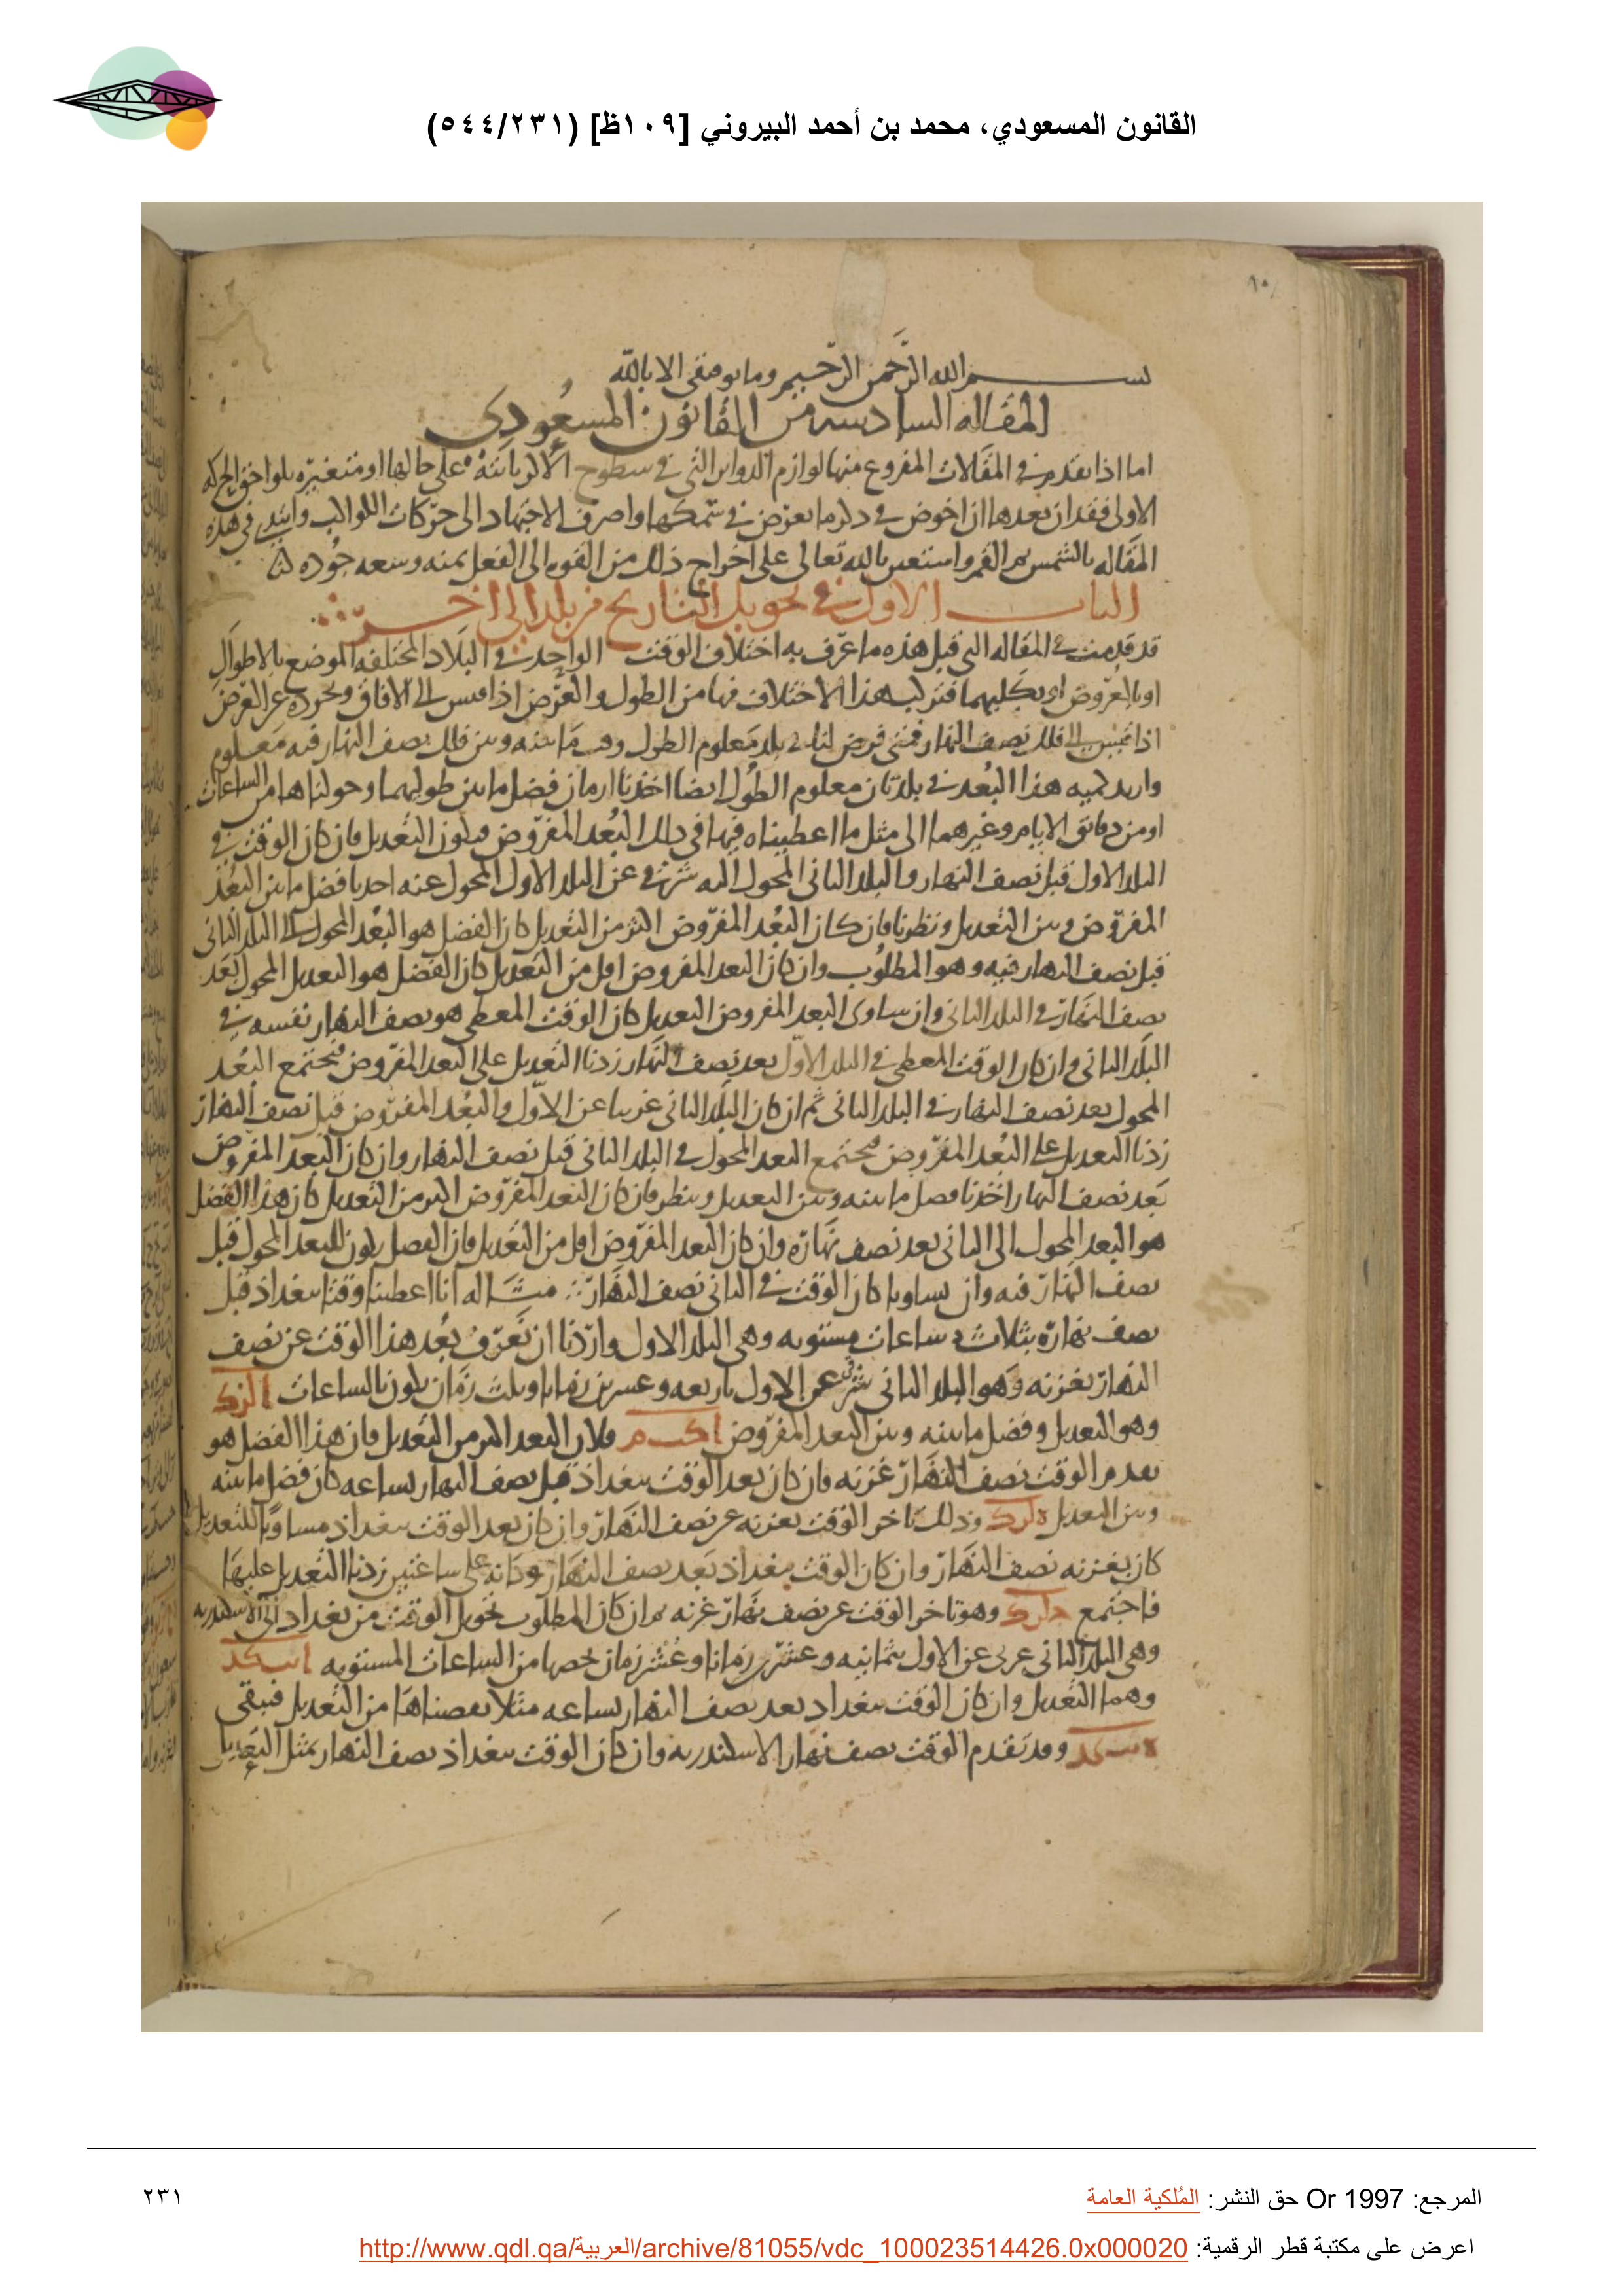 القانون المسعودي، محمد بن أحمد البيروني [١٠٩ظ] (٥٤٤/٢٣١)
بسم الله الرَّحمن الرّحيم وما توفيقى الا بالله
المقاله السادسه من القانون المسعُودى
اما اذا تقدم فى المقالات المفروع منها لوازم الدواير التى فى سطوح الاكر ثابتة على حالها او متغيّره بلواحق الحركه
الاولى فقد ان بعدها ان اخوض فى ذكر ما يعرض فى سمكها واصرف الاجتهاد الى حركات الكواكب وابتدى فى هذه
المقاله بالشمس ثم القمر واستعين بالله تعالى على اخراج ذلك من القوه الى الفعل بمنه وسعه جُوده لنا
الباب الاول فى تحويل التاريخ من بلد الى اخر
قد قدمت فى المقاله التى قبل هذه ما عرّف به اختلاف الوقت الواحد فى البلاد المختلفه الموضع بالاطوال
او بالعروض او بكليهما فتركب هذا الاختلاف فيها من الطول والعرض اذا قيس الى الافاق وتجرده عن العرض
اذا قيس الى فلك نصف النهار فمتى فرض لنا فى بلد معلوم الطول وقت ما بينه وبين فلك نصف النهار فيه معلوم
واريد كميه هذا البُعد فى بلد ثان معلوم الطُول ايضا اخذنا ازمان فضل ما بين طوليهما وحولناها من الساعات
او من دقائق الايام وغيرهما الى مثل ما اعطيناه فيها فى ذلك البُعد المفروض فيكون التعديل فان كان الوقت فى
البلد الاول قبل نصف النهار والبلد الثانى المحول اليه شرقى عن البلد الاول المحول عنه اخذنا فضل ما بين البُعد
المفروض وبين التعديل ونظرنا فان كان البُعد المفروض اكثر من التعديل كان الفضل هو البُعد المحول الى البلد الثانى
قبل نصف النهار فيه وهو المطلوب وان كان البعد المفروض اقل من التعديل كان الفضل هو التعديل المحول بَعد
نصف النهار فى البلد الثانى وان ساوى البعد المفروض التعديل كان الوقت المعطى هو نصف النهار نفسه فى
البلد الثانى وان كان الوقت المعطى فى البلد الاول بعد نصف النهار زدنا التعديل على البعد المفروض فيجتمع البُعد
المحول بعد نصف النهار فى البلد الثانى ثم ان كان البلد الثانى غربيا عن الاوّل والبُعد المفروض قبل نصف النهار
زدنا التعديل على البُعد المفروض فيجتمع البعد المحول فى البلد الثانى قبل نصف النهار وان كان البعد المفروض
بَعد نصف النهار اخذنا فضل ما بينه وبين التعديل وننظر فان كان البعد المفروض اكثر من التعديل كان هذا الفضل
هو البعد المحول الى الثانى بعد نصف نهاره وان كان البعد المفروض اقل من التعديل فان الفضل يكون للبعد المحول قبل
نصف النهار فيه وان تساويا كان الوقت فى الثانى نصف النهار مثاله انا اعطينا وقتا ببغداذ قبل
نصف نهاره بثلاث ساعات مستويه وهى البلد الاول واردنا ان نعرف بُعد هذا الوقت عن نصف
النهار بغزنه وهو البلد الثانى شرقى عن الاول باربعه وعشرين زمانا وثلث زمان يكون بالساعات ا لز ك
وهو التعديل وفضل ما بينه وبين البعد المفروض ا كب م فلان البعد اكثر من التعديل فان هذا الفضل هو
تقدم الوقت نصف النهار غزنه فان كان بعد الوقت ببغداذ قبل نصف النهار بساعه كان فضل ما بينه
وبين التعديل ه لز ك وذلك تاخر الوقت بغزنه عن نصف النهار وان كان بعد الوقت ببغداذ مساويا للتعديل
كان بغزنه نصف النهار وان كان الوقت ببغداذ بَعد نصف النهار وكانه على ساعتين زدنا التعديل عليها
فاجتمع ح لز ك وهو تاخر الوقت عن نصف نهار غزنه ثم ان كان المطلوب تحويل الوقت من بغداذ الى الاسكندريه
وهى البلد الثانى غربى عن الاول بثمانيه وعشرين زمانا وعُشر زمان يخصها من الساعات المستويه ا نب كد
وهما التعديل وان كان الوقت ببغداد بعد نصف النهار بساعه مثلا نقصناها من التعديل فيبقى
ه نب كد وقد تقدم الوقت نصف نهار الاسكندريه وان كان الوقت ببغداذ نصف النهار بمثل التعديل
المرجع: Or 1997 حق النشر: المُلكية العامة
٢٣١
اعرض على مكتبة قطر الرقمية: http://www.qdl.qa/العربية/archive/81055/vdc_100023514426.0x000020